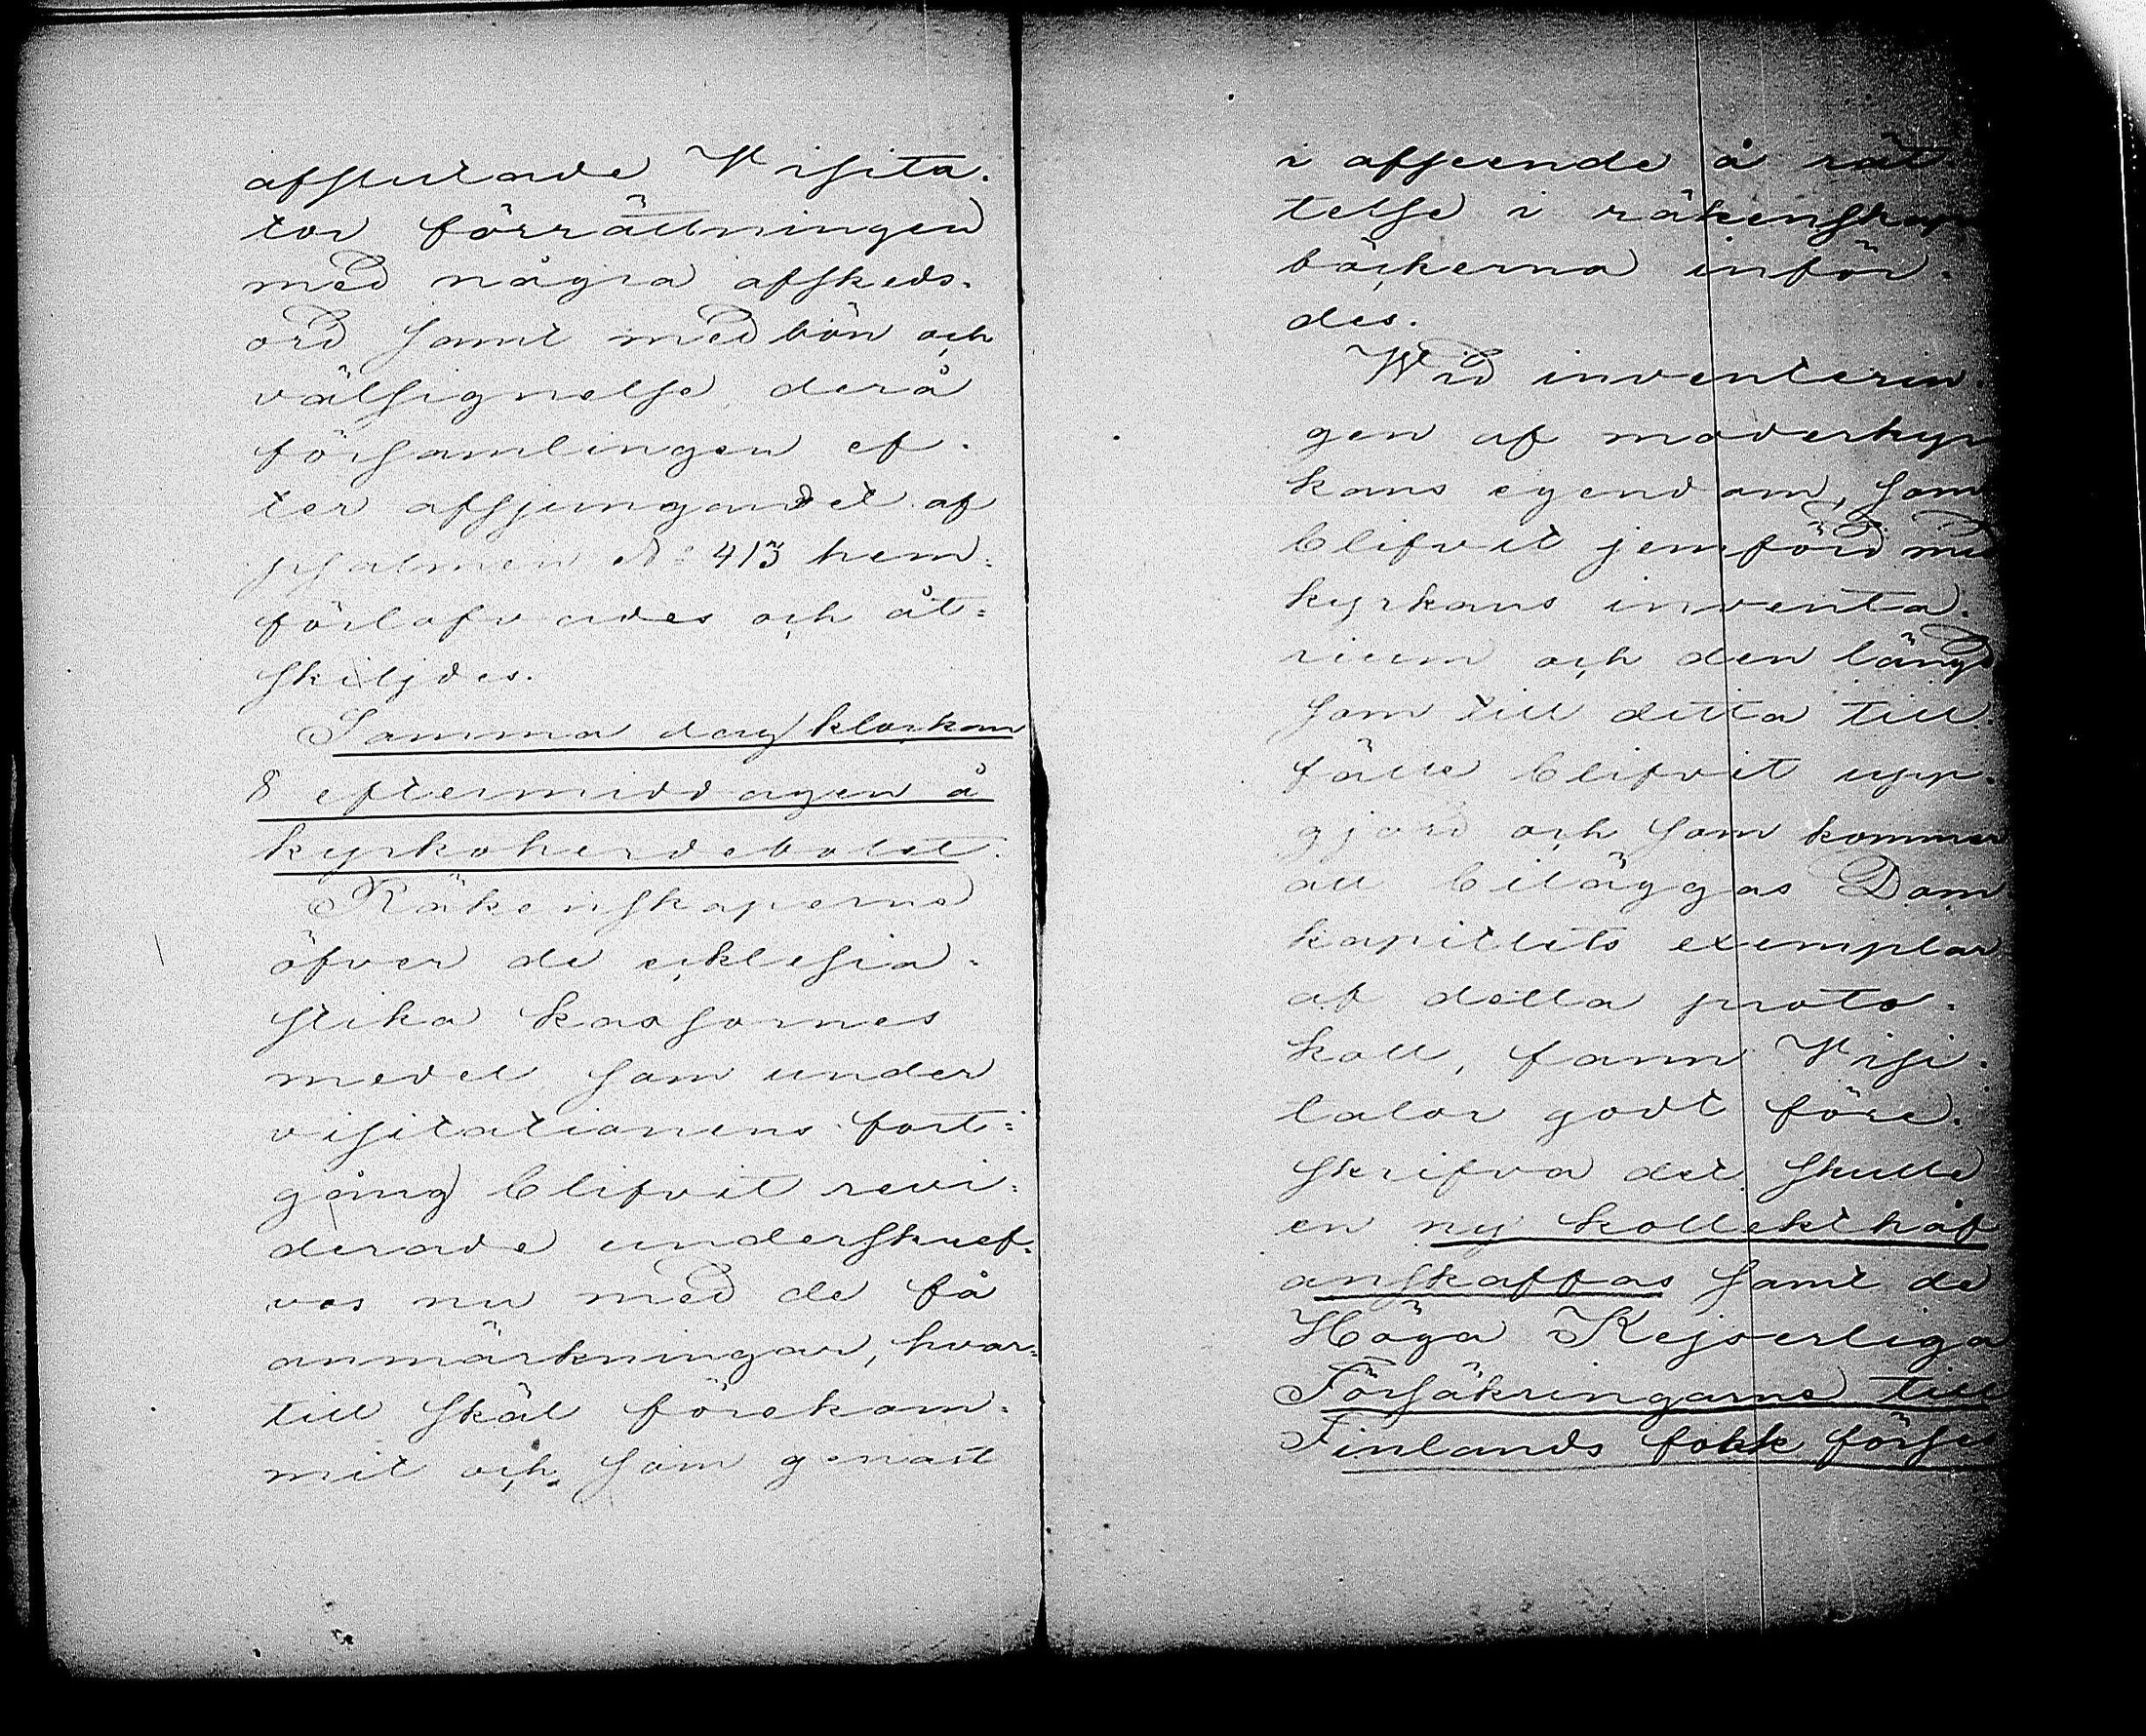 afslutade Visita-
tor förrättningen
med några afskeds-
ord samt med bön och
välsignelse, derå
församlingen ef-
ter afsjungandet af
psalmen No 413 hem-
förlofvades och åt-
skiljdes.
Samma dag klockan
8 eftermiddagen å
kyrkoherdebolet.
Räkenskaperna
öfver de ecklesia-
stika kassornes
medel som under
visitationens fort-
gång blifvit revi-
derade underskref-
vos nu med de få
anmärkningar, hvar-
till skäl förekom-
mit och som genast
i afseende å rät
telse i räkenskaps
böckerna inför-
des.
Wid inventerin-
gen af moderkyr
kans egendom, som
blifvit jemförd med
kyrkans inventa-
rium och den längd
som till detta till-
fälle blifvit upp-
gjord och som kommer
att biläggas Dom
kapitlets exemplar
af detta proto-
koll, fann Visi-
tator godt före-
skrifva det skulle
en ny kollekthåf
anskaffas samt de
Höga Kejserliga
Försäkringarne till
Finlands folk förse